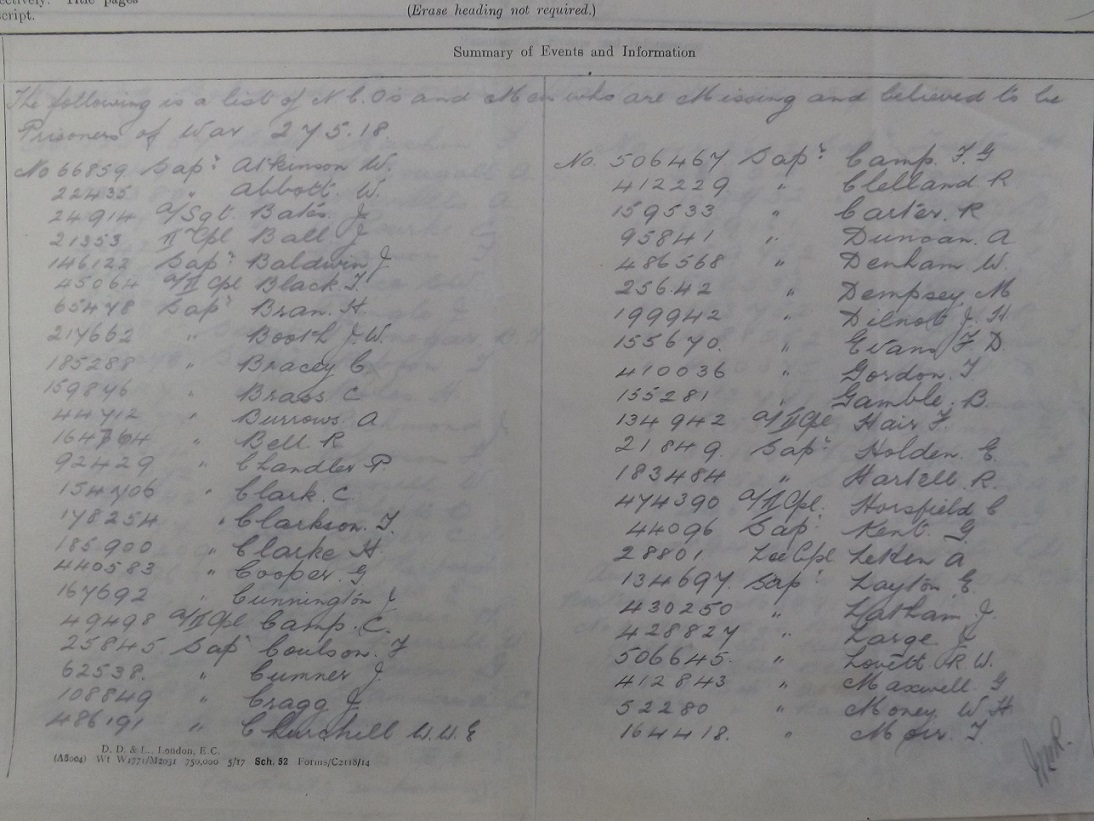 ectively. Title pages
script.
(Erase heading not required.)
Summary of Events and Information
The following is a list of N.C.Os and Men who are Missing and believed to be
Prisoners of War 27.5.18.
No 66859 Sapr Atkinson W.
22435 " Abbott. W.
24914 a/Sgt Bates. J
21353 II Cpl Ball J
146122 Sapr Baldwin J
45064 a/II Cpl Black. T.
65478 Sapr Bran. H.
217662 " Booth J.W.
185288 " Bracey C.
159876 " Brass C
44712 " Burrows A
164764 " Bell R
92429 " Chandler P
154706 " Clark. C.
178254 " Clarkson. T.
185900 " Clarke H
440583 " Cooper. G
167692 " Cunnington J
49498 a/II Cpl Camp. C.
25845 Sapr Coulson. T
62538. " Cumner J
108849 " Cragg J.
486191 " Churchill W.W.E
No. 506467 Sapr Camp. T. G
412229 " Clelland R
159533 " Carter. R
95841 " Duncan. A
486568 " Denham W.
25642 " Dempsey M
199942 " Dilnot J. H
155670. " Evans F D.
410036 " Gordon. T.
155281 " Gamble. B.
134942 a/II Cpl Hair T.
21849. Sapr Holden. E.
183484 " Hartell R.
474390 a/II Cpl. Horsfield C
44096 Sapr Kent. G
28801 Lce Cpl Leken A
134697. Sapr Layton E.
430250 " Latham J.
428827 " Large. J
506645. " Lovett R. W.
412843 " Maxwell G
52280 " Money W H
164418. " Moir. T.
D. D. & L., London, E.C.
(A8004) Wt W1771/M2031 750,000 5/17 Sch. 52 Forms/C2118/14